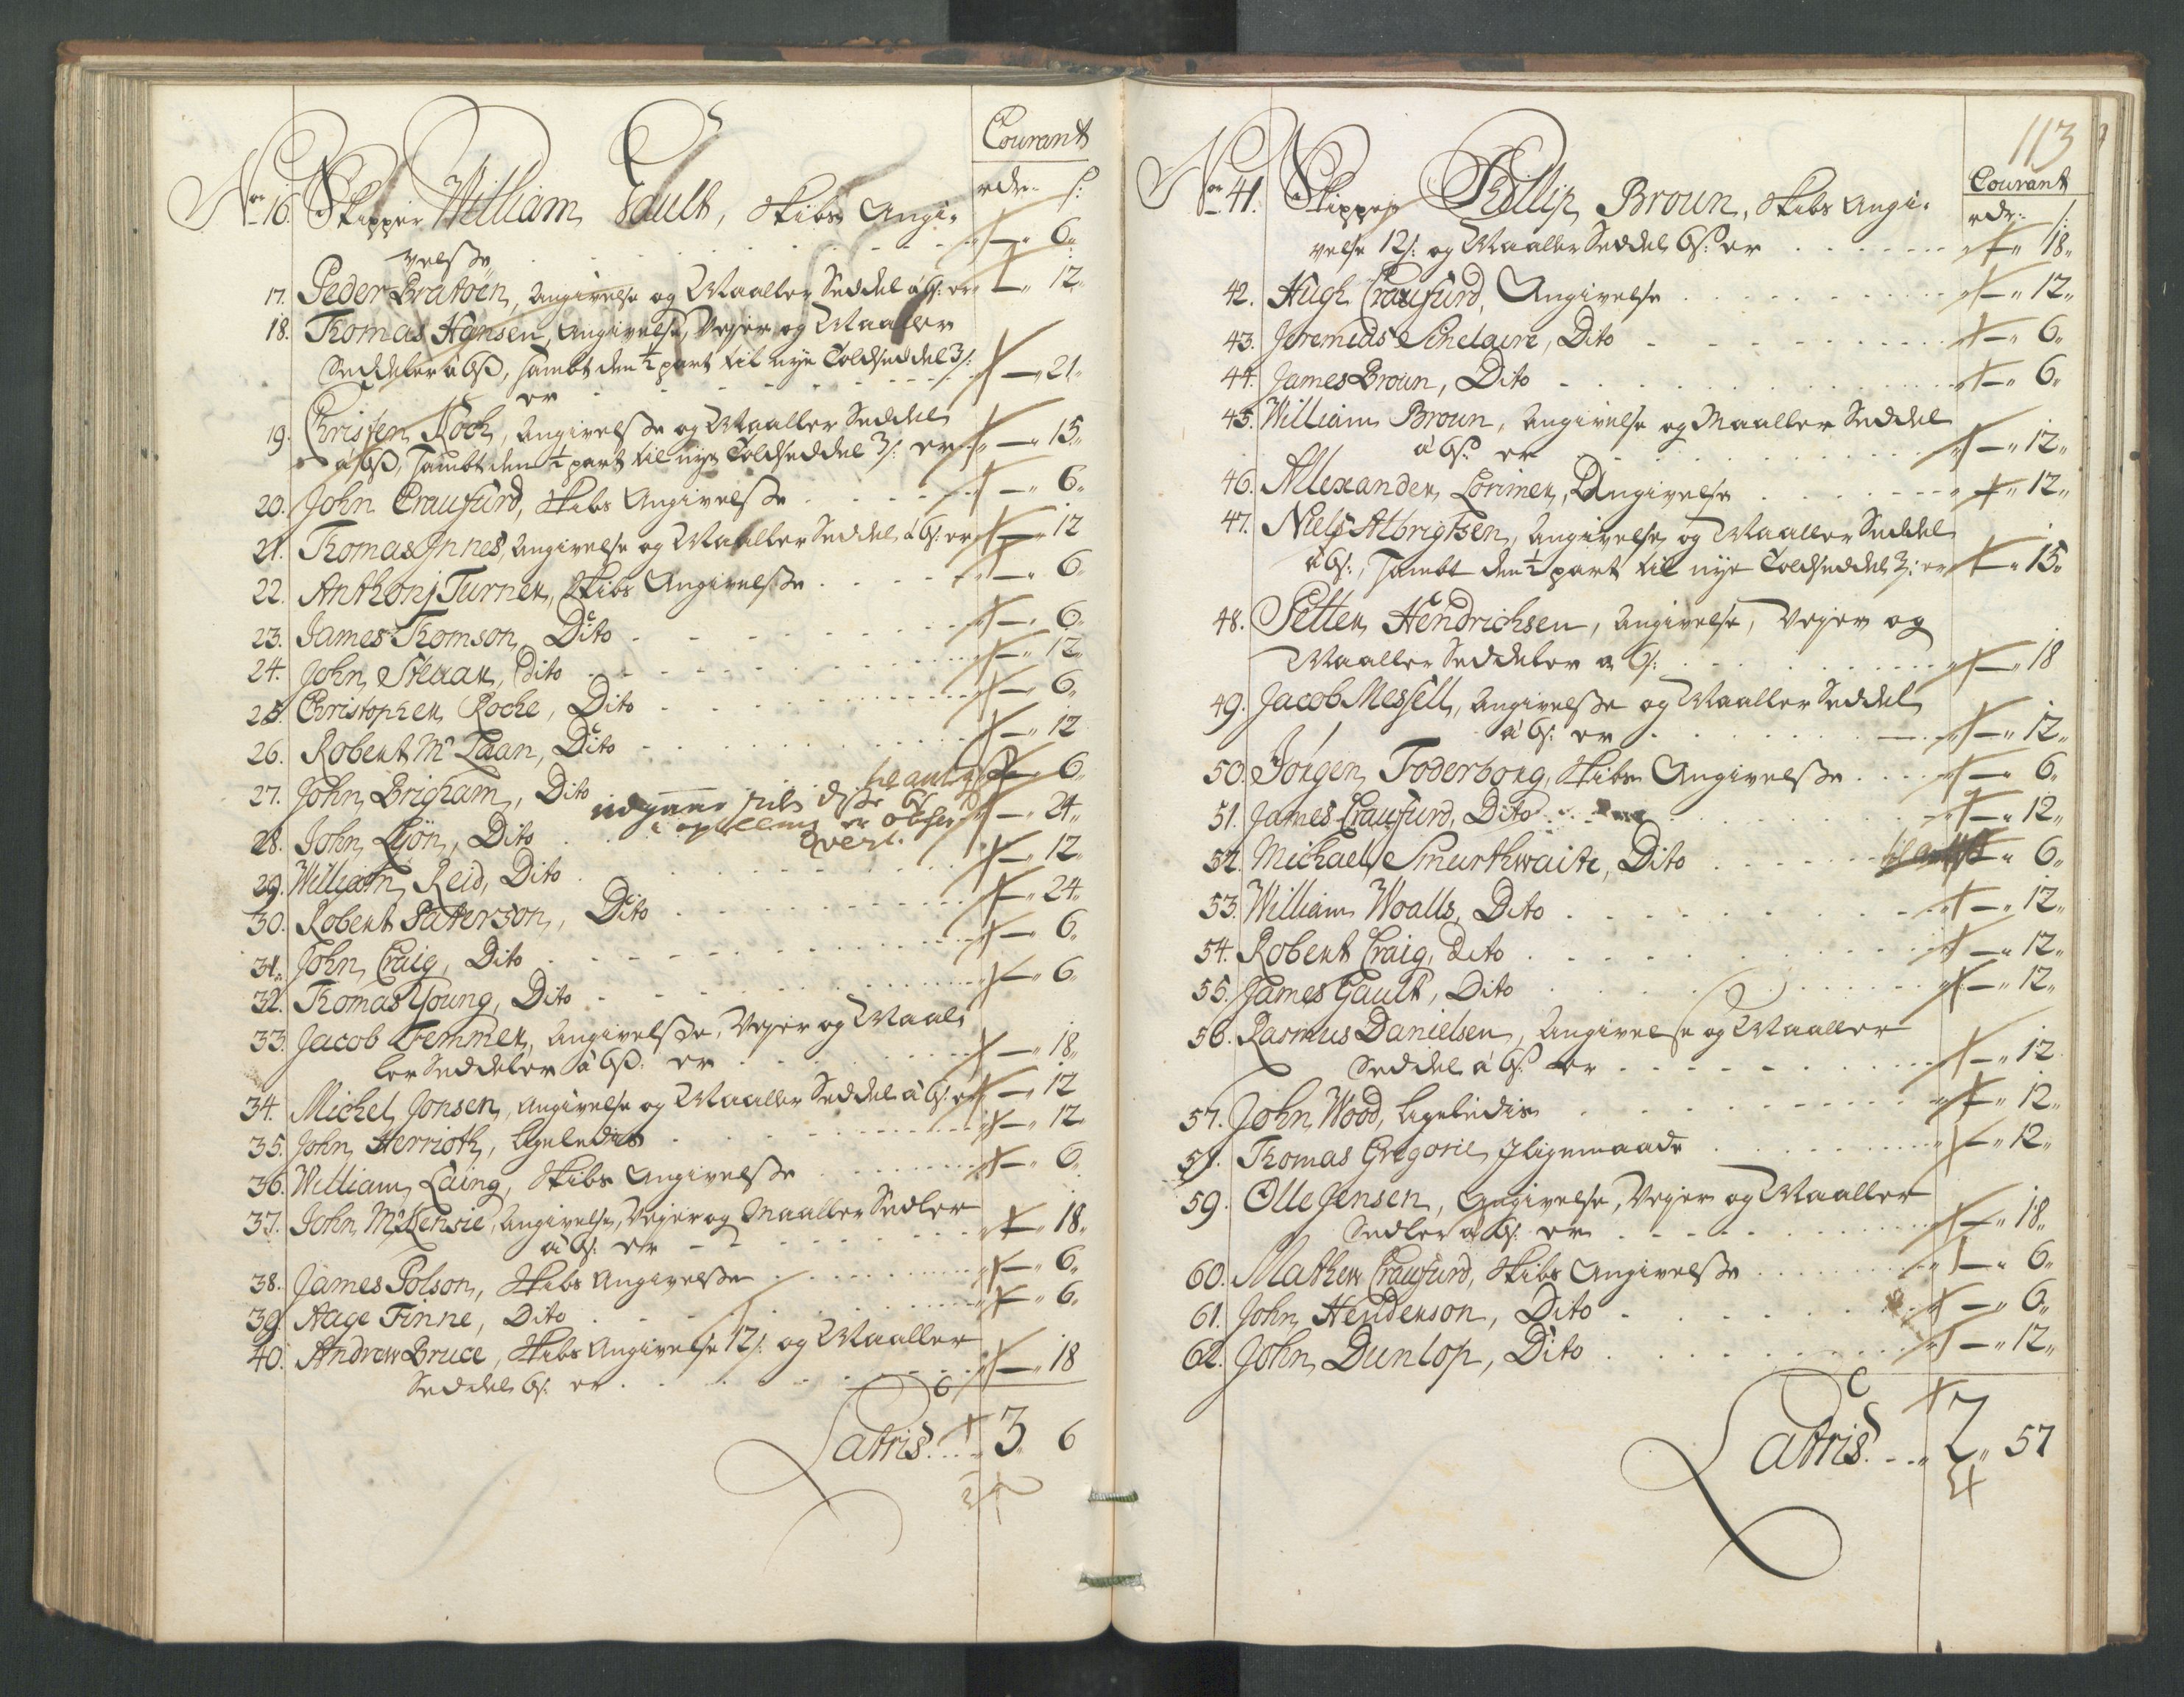 Courant
rdr. s:
No. 16. Skipper William Gault, Skibs Angi-
velsse . . . . . . " — " 6 "
17. Peder Bratøen, Angivelse og Maaller Seddel â 6s: er " — " 12 "
18. Thomas Hansen, Angivelse, Vejer og Maaller
Seddeler â 6ß, sambt den ½ part til nye Toldseddel 3s:
er . . . . . . " — " 21 "
19. Christen Koch, Angivelsse og Maaller Seddel
â 6ß, sambt den ½ part til nye Toldseddel 3s: er " — " 15 "
20. John Craufurd, Skibs Angivelsse . . . . " — " 6 "
21. Thomas Jnnes, Angivelse og Maaller Seddel â 6s: er " — " 12
22. Anthonj Turner, Skibs Angivelsse . . . . " — " 6 "
23. James Thomson, Dito . . . . " — " 6 "
24. John Steuar, Dito . . . . " — " 12 "
25. Christopher Roche, Dito . . . . " — " 6 "
26. Robert Mc Laan, Dito . . . . " — " 12
27. John Brigham, Dito " — " 6 "
28. John Lyon, Dito . . " — " 24 "
29. William Reid, Dito . . . . " — " 12 "
30. Robert Paterson, Dito . . . . " — " 24 "
31. John Craig, Dito . . . . " — " 6 "
32. Thomas Young, Dito . . . . " — " 6 "
33. Jacob Temmer, Angivelsse, Vejer og Maal-
ler Seddeler â 6ß. er . . . . " — " 18 "
34. Michel Jonsen, Angivelse og Maaller Seddel â 6s: er " — " 12
35. John Herrioth, ligeledis . . . . " — " 12 "
36. William Laing, Skibs Angivelsse . . . . " — " 6 "
37. John McKensie, Angivelse, Vejer og Maaller Sedler
â 6s: er . . . . " — " 18 "
38. James Polson, Skibs Angivelsse . . . . " — " 6 "
39. Aage Finne, Dito . . . . " — " 6 "
40. Andrew Bruce, Skibs Angivelse 12s: og Maaller
Seddel 6s: er . . . . " — " 18
Latris . . . " 3 " 6
113
Courant
rdr. s:
No. 41. Skipper Phillip Broun, Skibs Angi-
velse 12s: og Maaller Seddel 6s: er . . . . " — " 18 "
42. Hugh Craufurd, Angivelse . . . . " — " 12 "
43. Jeremias Schelaire, Dito . . . . " — " 6 "
44. James Broun, Dito . . . . " — " 6 "
45. William Broun, Angivelse og Maaller Seddel
â 6s: er . . . . " — " 12 "
46. Allexander Lorimer, Angivelse . . . . " — " 12 "
47. Niels Albrigtsen, Angivelse og Maaller Seddel
â 6s:, sambt den ½ part til nye Toldseddel 3s: er " — " 15 "
48. Petter Hendrichsen, Angivelse, Vejer og
Maaller Seddeler a 6s: . . . . " — " 18
49. Jacob Messell, Angivelsse og Maaller Seddel
â 6s: er . . . . " — " 12 "
50. Jørgen Foderborg, Skibs Angivelsse . . . . " — " 6 "
51. James Craufurd, Dito . . . . " — " 12 "
52. Michael Smurthwaite, Dito . . . . " — " 6 "
53. William Woalls, Dito . . . . " — " 12 "
54. Robert Craig, Dito . . . . " — " 12 "
55. James Gault, Dito . . . . " — " 12 "
56. Rasmus Danielsen, Angivelse og Maaller
Seddel â 6s: er . . . . " — " 12
57. John Wood, ligeledis . . . . " — " 12 "
58. Thomas Gregorie, Jligemaade . . . . " — " 12 "
59. Olle Jensen, Angivelse, Vejer og Maaller
Sedler â 6s: er . . . . " — " 18 "
60. Mathew Craufurd, Skibs Angivelsse . . . . " — " 6 "
61. John Henderson, Dito . . . . " — " 6 "
62. John Dunlop, Dito . . . . " — " 12 "
Latris . . . " 2 " 57